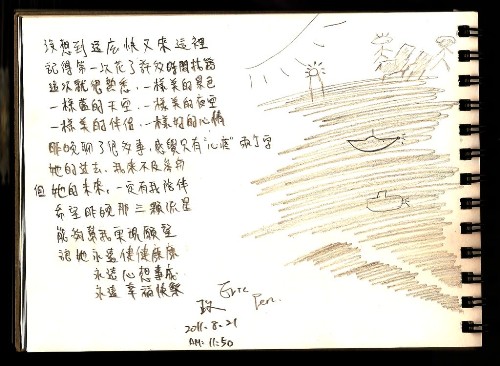 沒想到這麼快又來這裡
記得第一次花了許多時間找路
這次就很熟悉,一樣美的景色
一樣藍的天空,一樣美的夜空
一樣美的伴侶,一樣好的心情
昨晚聊了很多事,感覺只有"心疼"兩個字
她的過去,我來不及參與
但她的未來,一定有我陪伴
希望昨晚那三顆流星
能夠幫我實現願望
讓她永遠健健康康
永遠心想事成
永遠幸福快樂
Eric
2011.8.21
AM: 11:50